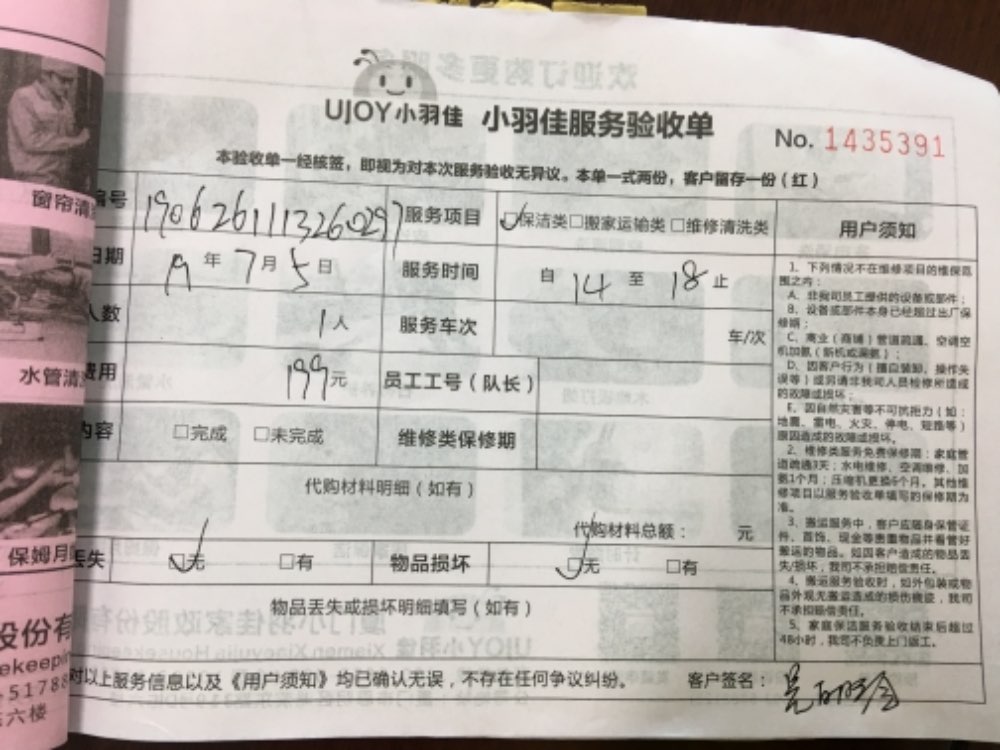 UJOY小羽佳 小羽佳服务验收单
No. 1435391
本验收单一经核签，即视为对本次服务验收无异议。本单一式两份，客户留存一份(红)
编号 19062611113260297 服务项目 □保洁类□搬家运输类 □维修清洗类 用户须知
日期 19年7月5日 服务时间 自 14 至 18 止
人数 1人 服务车次 车/次
费用 199元 员工工号（队长）
内容 □完成 □未完成 维修类保修期
代购材料明细（如有）
代购材料总额： 元
丢失 □无 □有 物品损坏 □无 □有
物品丢失或损坏明细填写（如有）
对以上服务信息以及《用户须知》均已确认无误，不存在任何争议纠纷。 客户签名：
1、下列情况不在维修项目的维保范
围之内：
A、非我司员工提供的设备或部件；
B、设备或部件本身已经超过出厂保
修期；
C、商业（商铺）管道疏通、空调空
机加氨（新机或漏氨）；
D、因客户行为（擅自装卸、操作失
误等）或另请非我司人员检修所造成
的故障或损坏；
E、因自然灾害等不可抗拒力（如：
地震、雷电、火灾、停电、短路等）
原因造成的故障或损坏。
2、维修类服务免费保修期：家庭管
道疏通3天；水电维修、空调维修、加
氨1个月；压缩机更换6个月。其他维
修项目以服务验收单填写的保修期为
准。
3、搬运服务中，客户应随身保管证
件、首饰、现金等贵重物品并看管好
搬运的物品。如因客户造成的物品丢
失/损坏，我司不承担赔偿责任。
4、搬运服务验收时，如外包装或物
品外观无搬运造成的损伤痕迹，我司
不承担赔偿责任。
5、家庭保洁服务验收结束后超过
48小时，我司不负责上门返工。
窗帘清洗
水管清
保姆月
股份有
ekeepin
51788
六楼